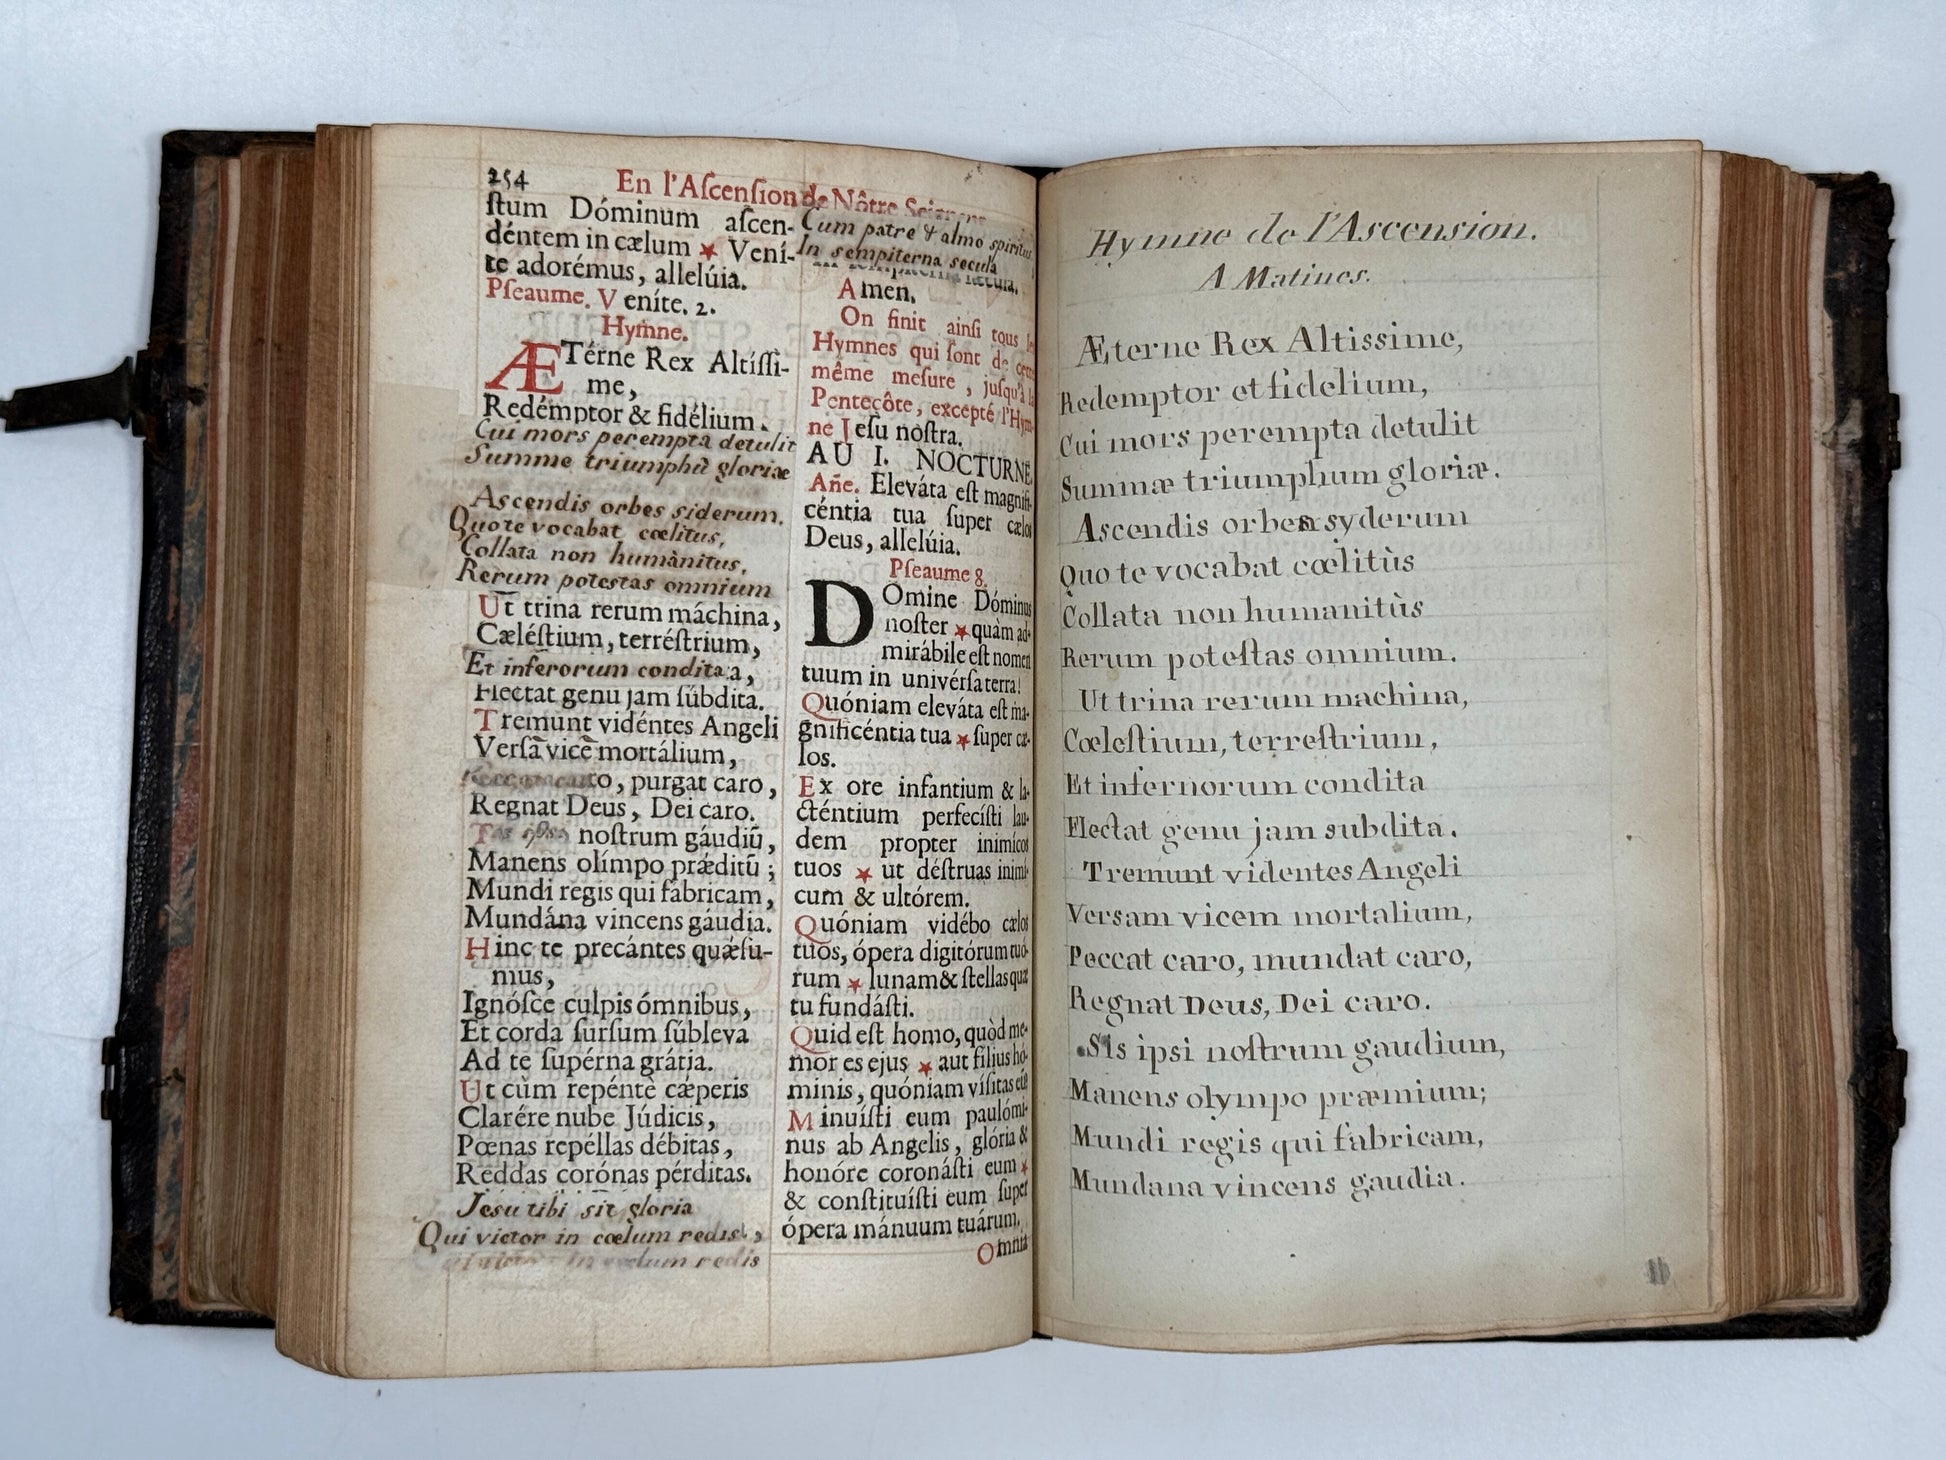 254
En l'Aſcenſion de Nôtre Seigneur
ſtum Dóminum aſcen-
déntem in cælum ★ Vení-
te adorémus, allelúia.
Pſeaume. Veníte. 2.
Hymne.
ÆTérne Rex Altíſſi-
me,
Redémptor & fidélium.
Cui mors perempta detulit
Summe triumphũ gloriæ
Ascendis orbes siderum.
Quo te vocabat cœlitus,
Collata non humànitus,
Rerum potestas omnium
Ut trina rerum máchina,
Cæléſtium, terréſtrium,
Et inferorum condita a,
Flectat genu jam ſúbdita.
Tremunt vidéntes Angeli
Verſã vicẽ mortálium,
purgat caro,
Regnat Deus, Dei caro.
noſtrum gáudiũ,
Manens olímpo prǽditũ;
Mundi regis qui fábricam,
Mundána vincens gáudia.
Hinc te precántes quǽſu-
mus,
Ignóſce culpis ómnibus,
Et corda ſurſum ſúbleva
Ad te ſupérna grátia.
Ut cùm repéntè cǽperis
Clarére nube Júdicis,
Pœnas repéllas débitas,
Reddas corónas pérditas.
Jesu tibi sit gloria
Qui victor in cœlum redis,
in cœlum redis
Cum patre & almo spiritu
In sempiterna secula
Amen.
On finit ainſi tous
Hymnes qui ſont de
même meſure, juſqu'à
Pentecôte, excepté l'Hym-
ne Jeſu noſtra.
AU I. NOCTURNE
Añe. Eleváta eſt magnifi-
céntia tua ſuper cælos
Deus, allelúia.
Pſeaume 8.
DOmine Dóminus
noſter ★ quàm ad-
mirábile eſt nomen
tuum in univérſa terra!
Quóniam eleváta eſt ma-
gnificéntia tua ★ ſuper cæ-
los.
Ex ore infantium & la-
cténtium perfecíſti lau-
dem propter inimícos
tuos ★ ut déſtruas inimí-
cum & ultórem.
Quóniam vidébo cælos
tuos, ópera digitórum tuó-
rum ★ lunam & ſtellas quæ
tu fundáſti.
Quid eſt homo, quòd me-
mor es ejus ★ aut fílius hó-
minis, quóniam víſitas eũ
Minuíſti eum paulómi-
nus ab Angelis, glória &
honóre coronáſti eum ★
& conſtituíſti eum ſuper
ópera mánuum tuárum.
Omnia
Hymne de l'Ascension.
A Matines.
Æterne Rex Altissime,
Redemptor et fidelium,
Cui mors perempta detulit
Summæ triumphum gloriæ.
Ascendis orbes syderum
Quo te vocabat cœlitùs
Collata non humanitùs
Rerum poteſtas omnium.
Ut trina rerum machina,
Cœleſtium, terreſtrium,
Et infernorum condita
Flectat genu jam subdita.
Tremunt videntes Angeli
Versam vicem mortalium,
Peccat caro, mundat caro,
Regnat Deus, Dei caro.
Sis ipsi noſtrum gaudium,
Manens olympo præmium;
Mundi regis qui fabricam,
Mundana vincens gaudia.